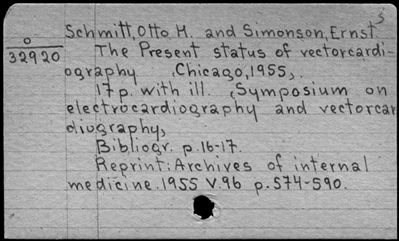 3
Schmitt, Otto H. and Simonson, Ernst
O
32920
The Present status of vectorcardi-
ography (Chicago, 1955).
17 p. with ill. (Symposium on
electrocardiography and vectorcar
diography)
Bibliogr. p. 16-17.
Reprint: Archives of internal
medicine. 1955 V. 96 p. 574-590.